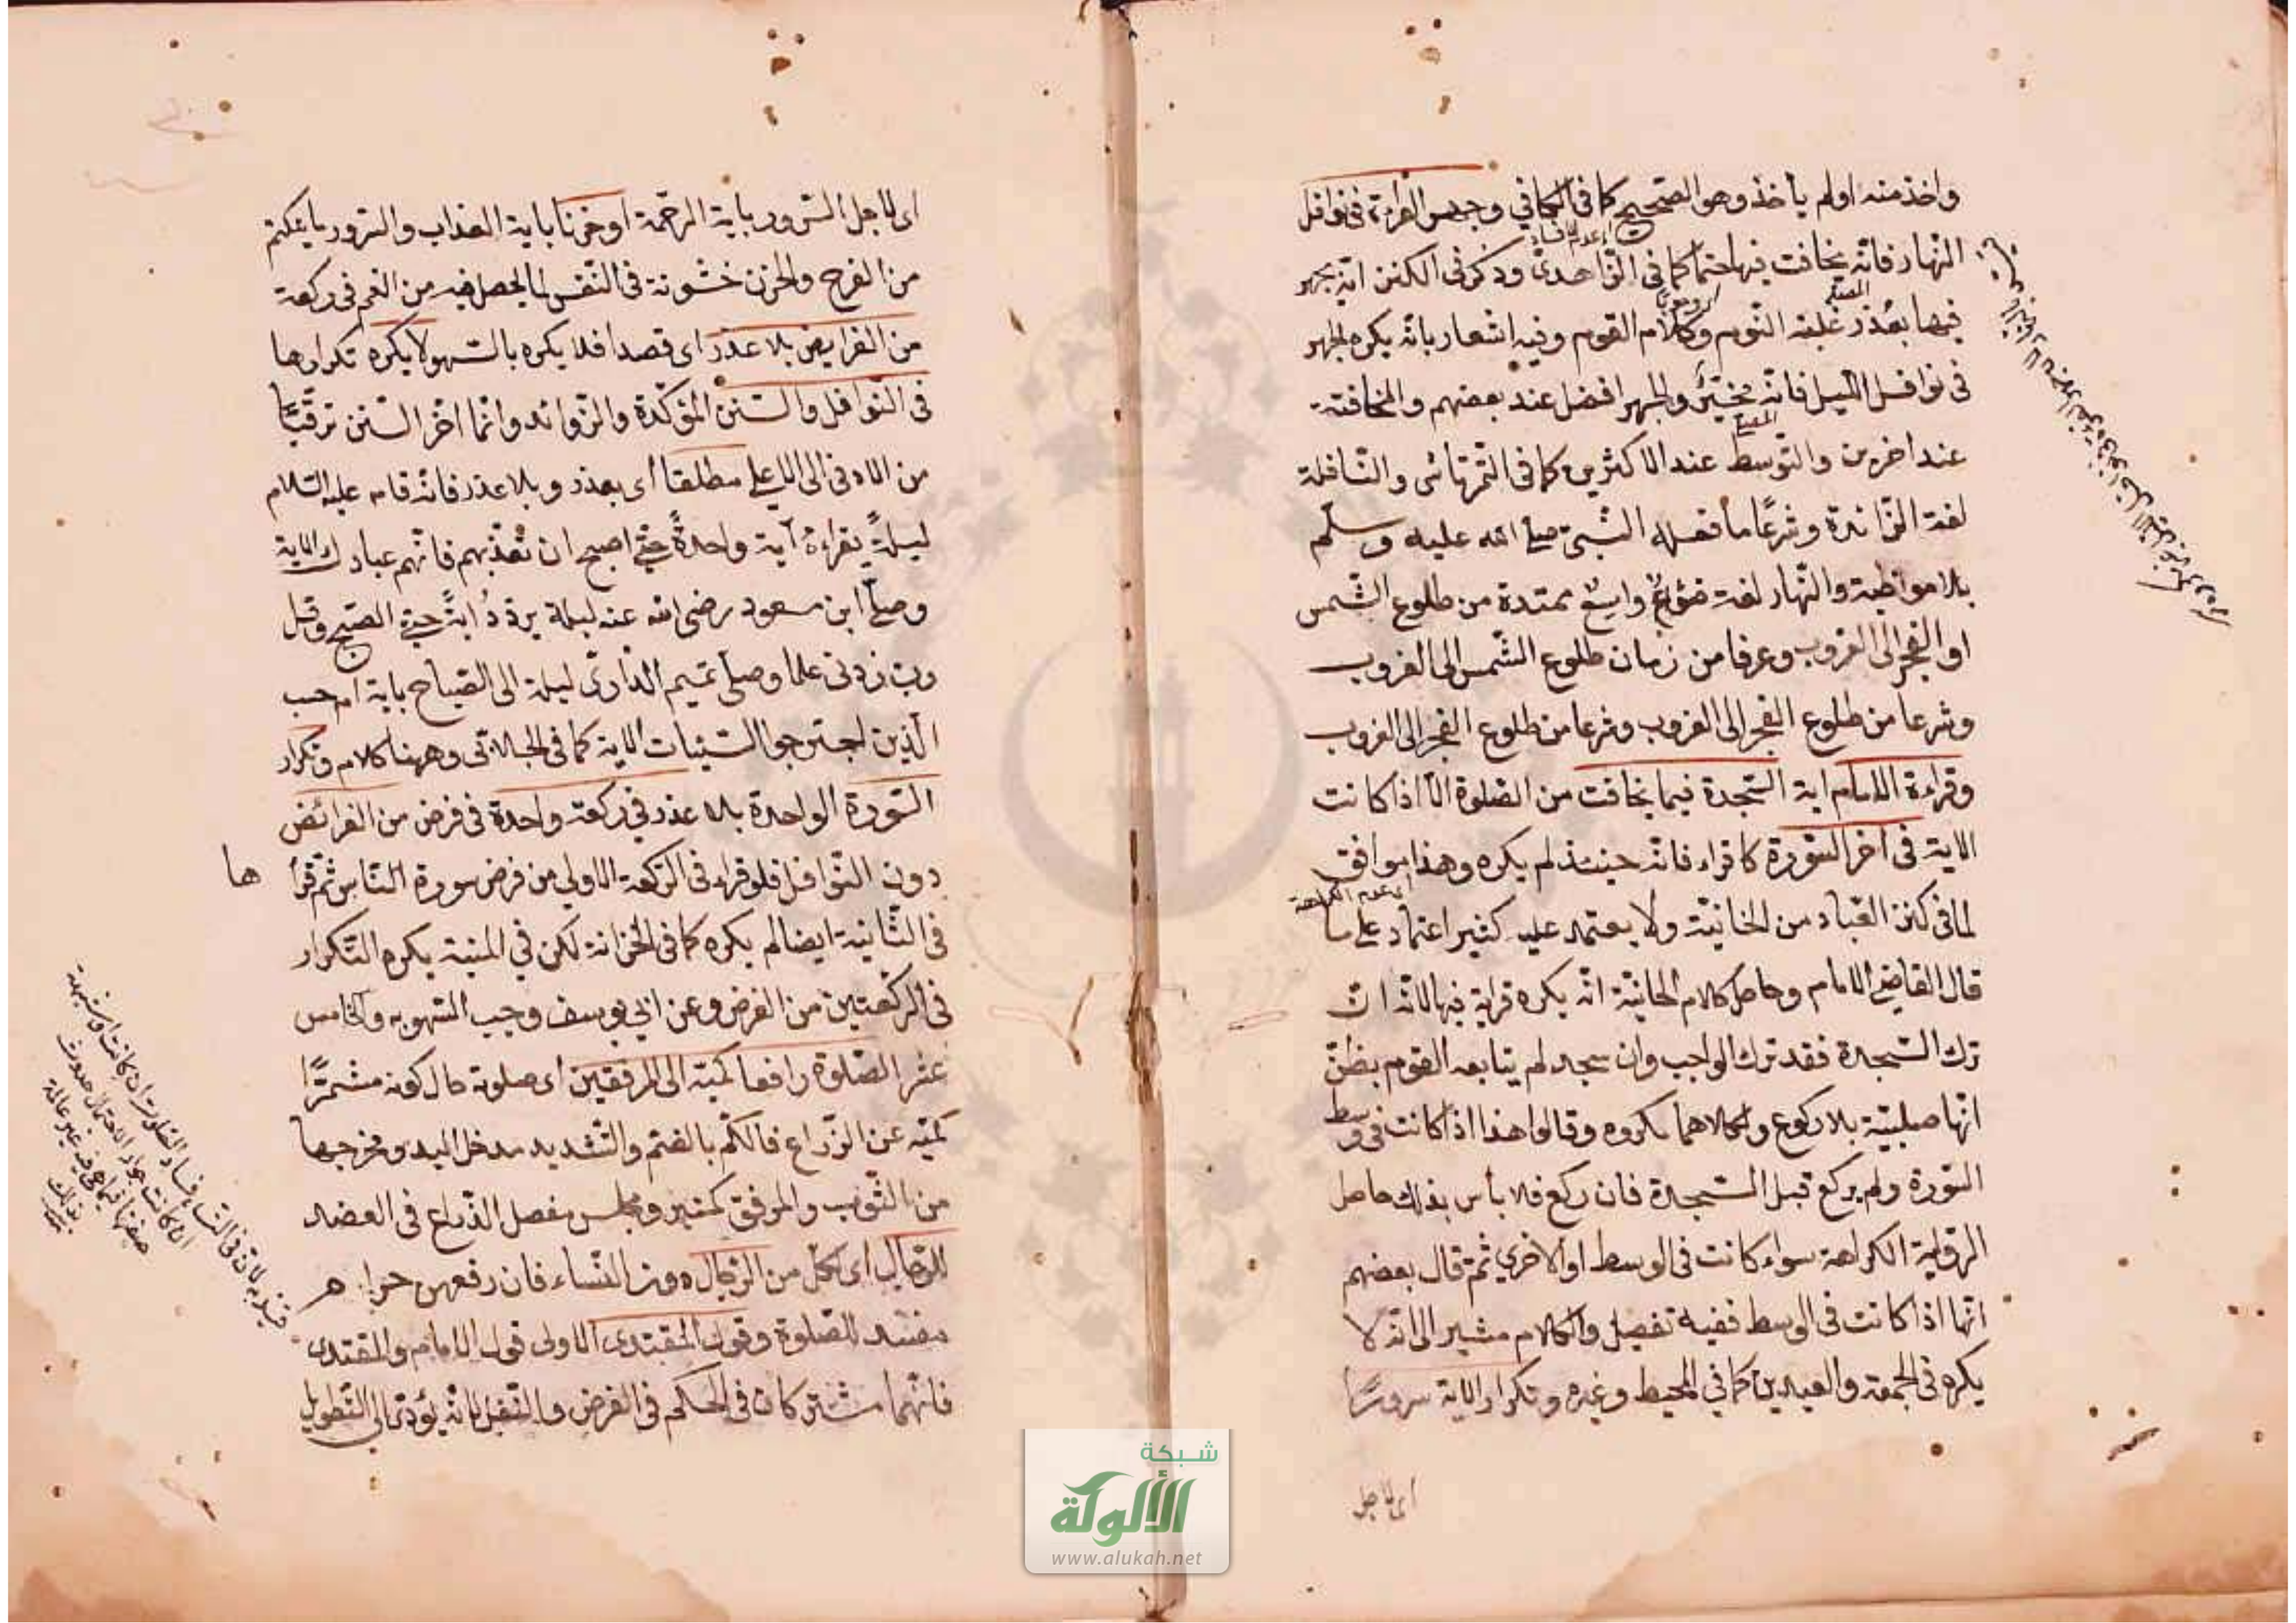 واخذ منه اولم يأخذ وهو الصحيح كما فى الكافي وجهر القراءة فى نوافل
النهار فانه يخافت فيها حتما كما فى الزاهدى وذكر فى الكنز انه يجهر
فيها بعذر غلبة النوم وكلام القوم وفيه اشعار بانه يكره الجهر
فى نوافل الليل فانه مخير والجهر افضل عند بعضهم والمخافتة
عند اخرين والتوسط عند الاكثرين كما فى التمرتاشى والنافلة
لغة الزائدة وشرعا ما فعله النبي صلى الله عليه وسلم
بلا مواظبة والنهار لغة ضوء واسع ممتدة من طلوع الشمس
او الفجر الى الغروب وعرفا من زمان طلوع الشمس الى الغروب
وشرعا من طلوع الفجر الى الغروب وشرعا من طلوع الفجر الى الغروب
وقراءة الامام اية السجدة فيما يخافت من الصلوة الا اذا كانت
الاية فى اخر السورة كا قراء فانه حينئذ لم يكره وهذا موافق
اى عدم الكراهة
لما فى كنز العباد من الخانية ولا يعتمد عليه كثير اعتماد على ما
قال القاضى الامام وحاصل كلام الخانية انه يكره قراية فيها لانه ان
ترك السجدة فقد ترك الواجب وان سجد لم يتابعه القوم بظن
انها صلبية بلا ركوع وكلاهما مكروه وقالوا هذا اذا كانت فى وسط
السورة ولم يركع قبل السجدة فان ركع فلا بأس بذلك حاصل
الرواية الكراهة سواء كانت فى الوسط او الاخري ثم قال بعضهم
انها اذا كانت فى الوسط ففيه تفصيل والكلام مشير الى انه لا
يكره فى الجمعة والعيدين كما في المحيط وغيره وتكرار الاية سرورا
اى لاجل
اى لاجل السرور باية الرحمة او حزنا باية العذاب والسرور ما يكتم
من الفرح والحزن خشونة فى النفس لما يحصل فيه من الغم فى ركعة
من الفرايض بلا عذر اى قصدا فلا يكره بالسهو لا يكره تكرارها
فى النوافل والسنن المؤكدة والزوائد وانما اخر السنن ترقيا
من الادنى الى الاعلى مطلقا أى بعذر وبلا عذر فانه قام عليه السلام
ليلة بقراءة آية واحدة حتى اصبح ان تعذبهم فانهم عبادك الاية
وصلى ابن مسعود رضى الله عنه ليلة يردد اية حتى الصبح وقل
رب زدنى علما وصلى تميم الدارى ليلة الى الصباح باية ام حسب
الذين اجترحوا السيئات الاية كما فى الجلالى وههنا كلام وتكرار
السورة الواحدة بلا عذر في ركعة واحدة فى فرض من الفرائض
دون النوافل فلو قراء فى الركعة الاولى من فرض سورة الناس ثم قرأ
ها
فى الثانية ايضا لم يكره كما فى الخزانة لكن في المنية يكره التكرار
فى الركعتين من الفرض وعن ابي يوسف وجب السهو به والخامس
عشر الصلوة رافعا كميه الى المرفقين أى صلوته حال كونه مشمرا
كميه عن الذراع فالكم بالضم والتشديد مدخل اليد ومخرجها
من الثوب والمرفق كمنبر ومجلس مفصل الذراع فى العضد
للرجال اى لكل من الرجال دون النساء فان رفعهن حرام
مفسد للصلوة وقول المقتدى الاولى قول الامام والمقتدى
فانهما مشتركان فى الحكم فى الفرض والنفل لانه يؤدى الى التطويل
شبكة
الألوكة
www.alukah.net